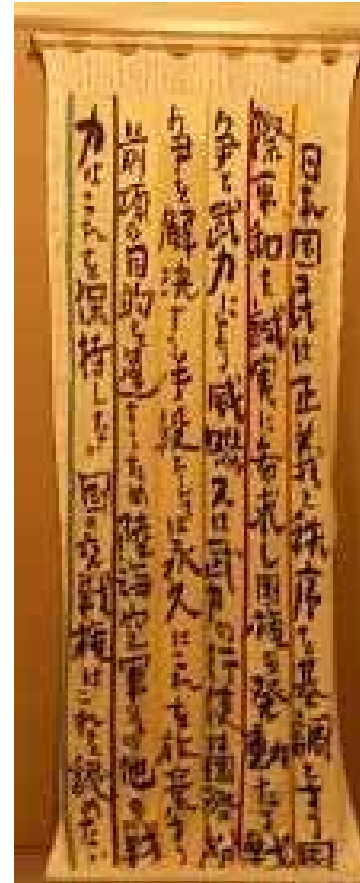 日本国民は正義と秩序を基調とする国
際平和を誠実に希求し国権の発動たる戦
争と武力による威嚇又は武力の行使は国際紛
争を解決する手段としては永久にこれを放棄する
前項の目的を達するため陸海空軍その他の戦
力はこれを保持しない 国の交戦権はこれを認めない